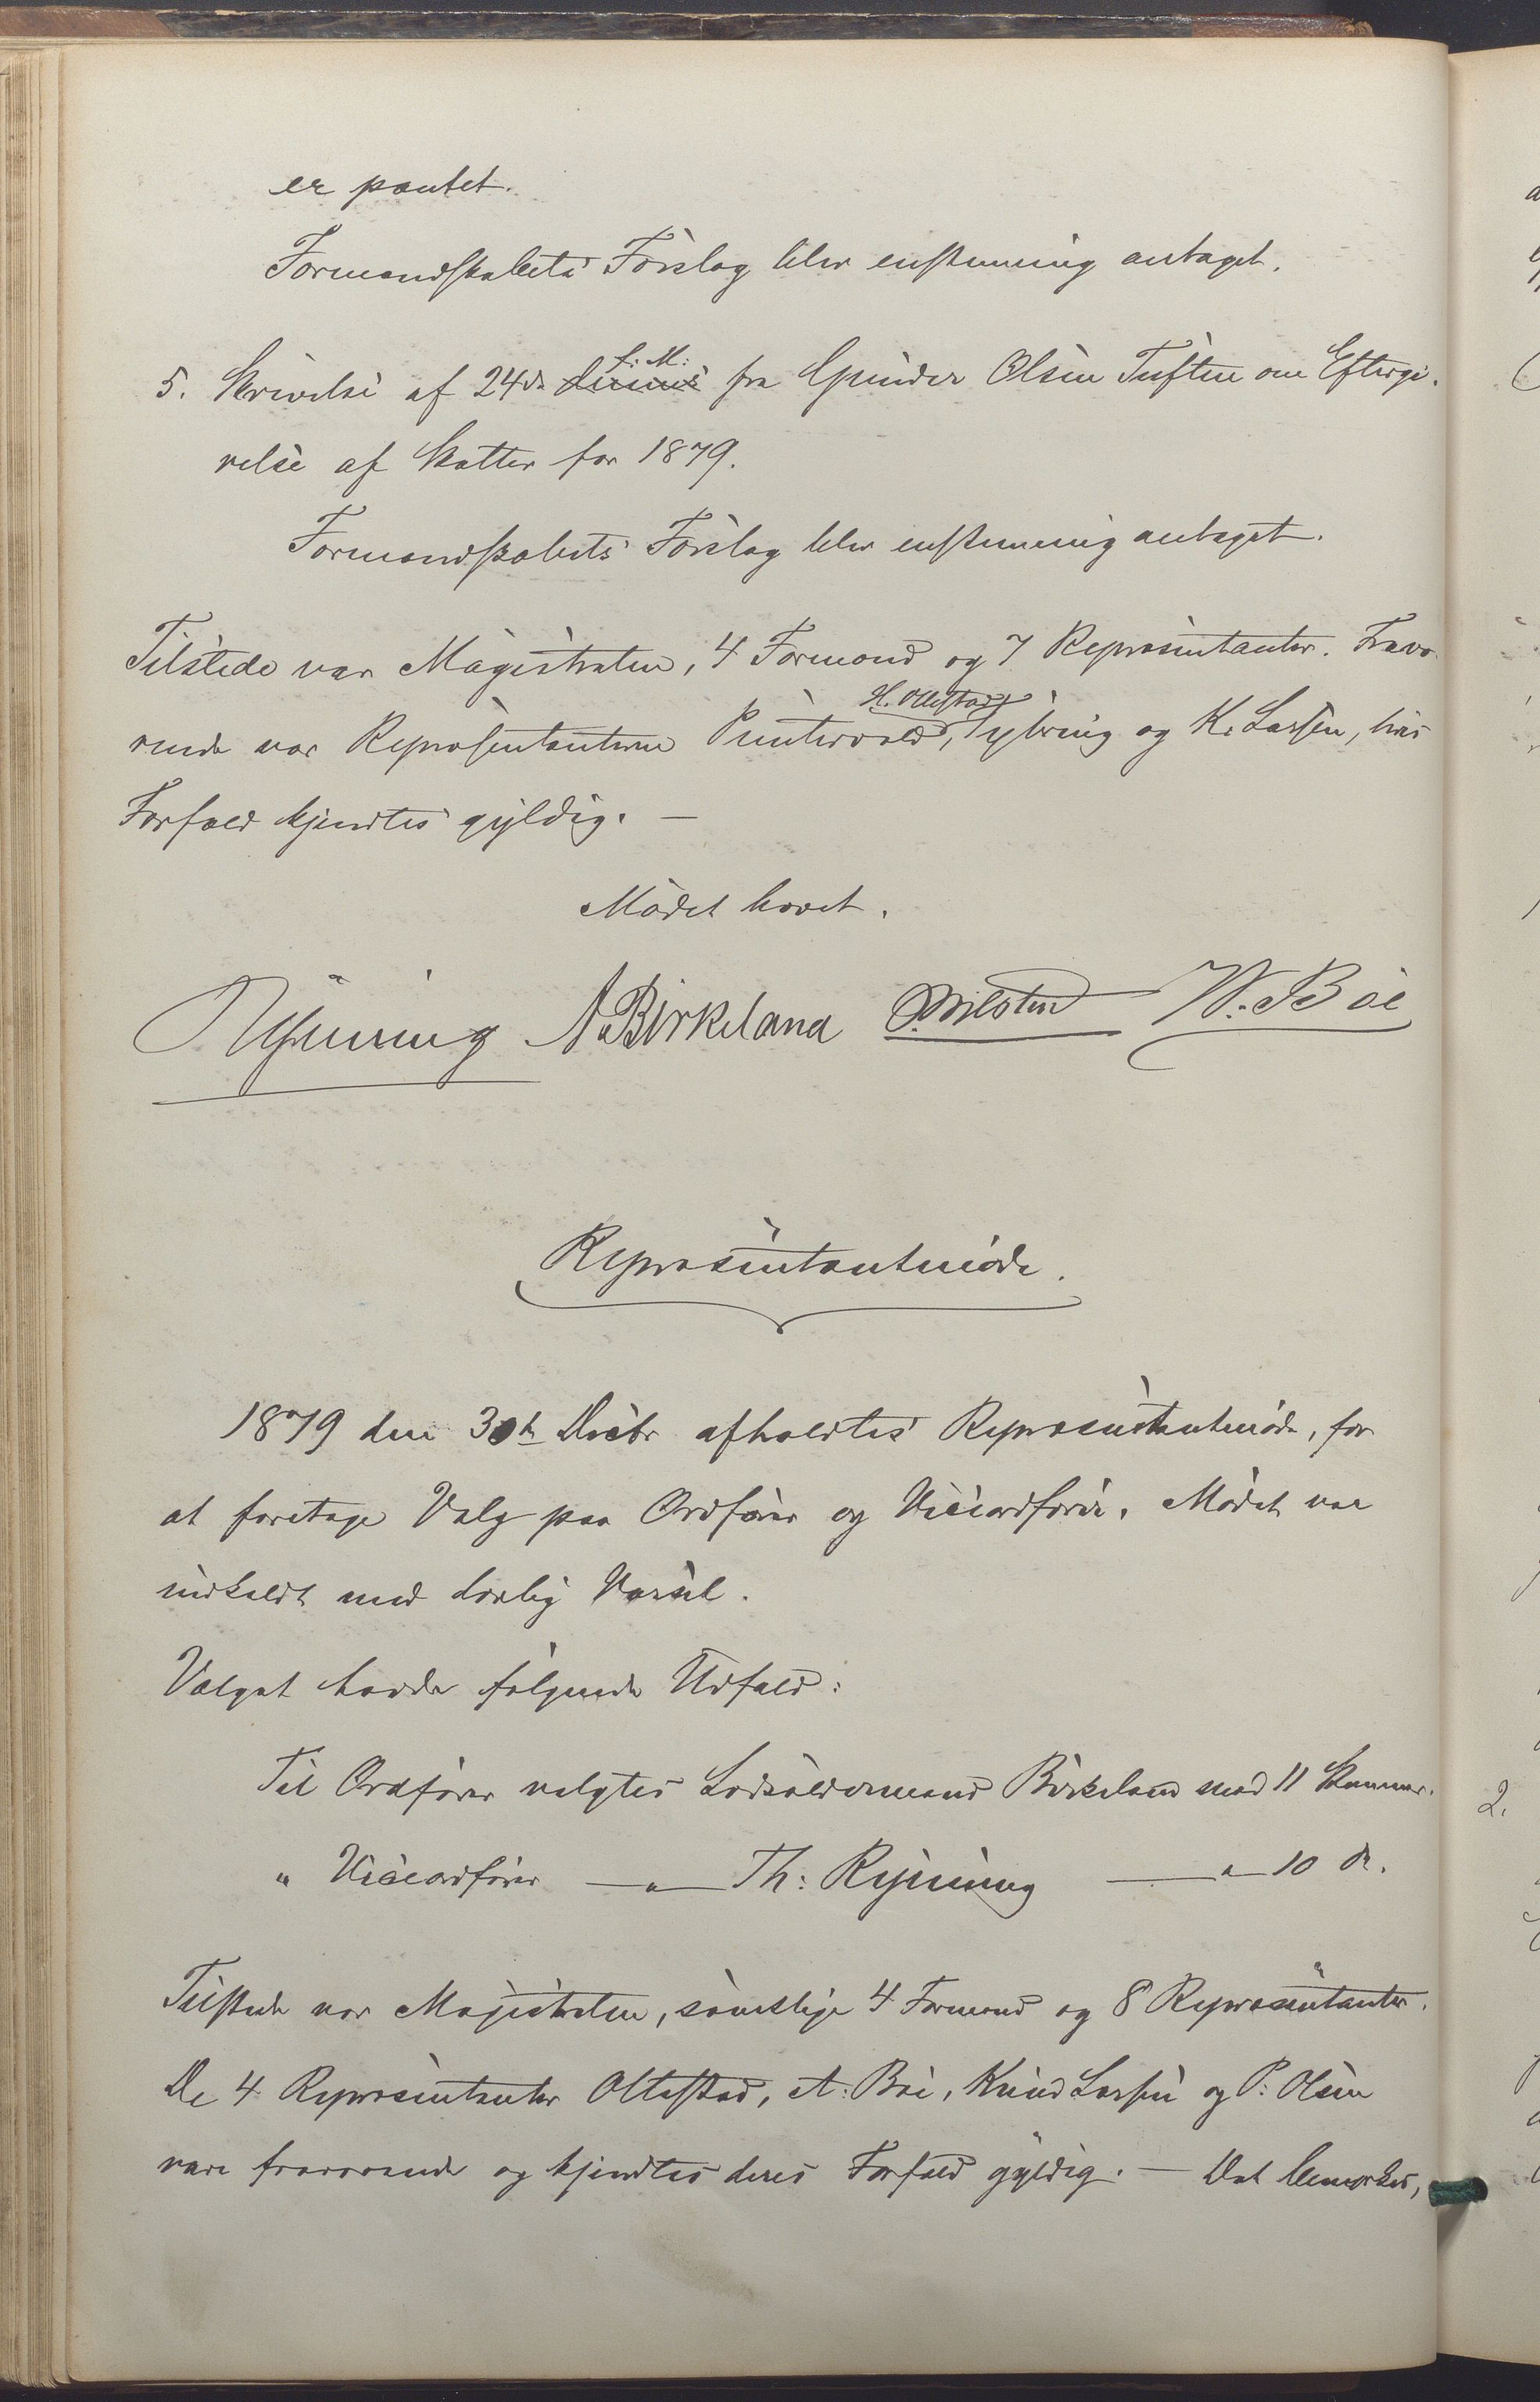 er pantet.
Formandskabets Forslag blev enstemmig antaget.
5. Skrivelse af 24de f: M: fra Gunder Olsen Tuften om Eftergi-
velse af Skatter for 1879.
Formandskabets Forslag blev enstemmig antaget.
Tilstede var Magistraten, 4 Formænd og 7 Repræsentanter. Fravæ-
rende var Repræsentanterne Puntervold, H. Ollestad, Sylvring og K. Larsen, hvis
Forfald kjendtes gyldig. —
Mødet hævet.
Th Rynning A Birkeland O. Milsten W. Bøe
Repræsentantmøde.
1879 den 30te Decbr afholdtes Repræsentantmøde, for
at foretage Valg paa Ordfører og Viceordfører. Mødet var
indkaldt med lovlig Varsel.
Valget havde følgende Udfald:
Til Ordfører valgtes Lodsoldermand Birkeland med 11 Stemmer.
" Viceordfører —"— Th: Rynning —"— 10 do.
Tilstede var Magistraten, samtlige 4 Formænd og 8 Repræsentanter.
De 4 Repræsentanter Ollestad, A: Bøe, Knud Larsen og P: Olsen
vare fraværende og kjendtes deres Forfald gyldig. — Det bemærkes,
2.